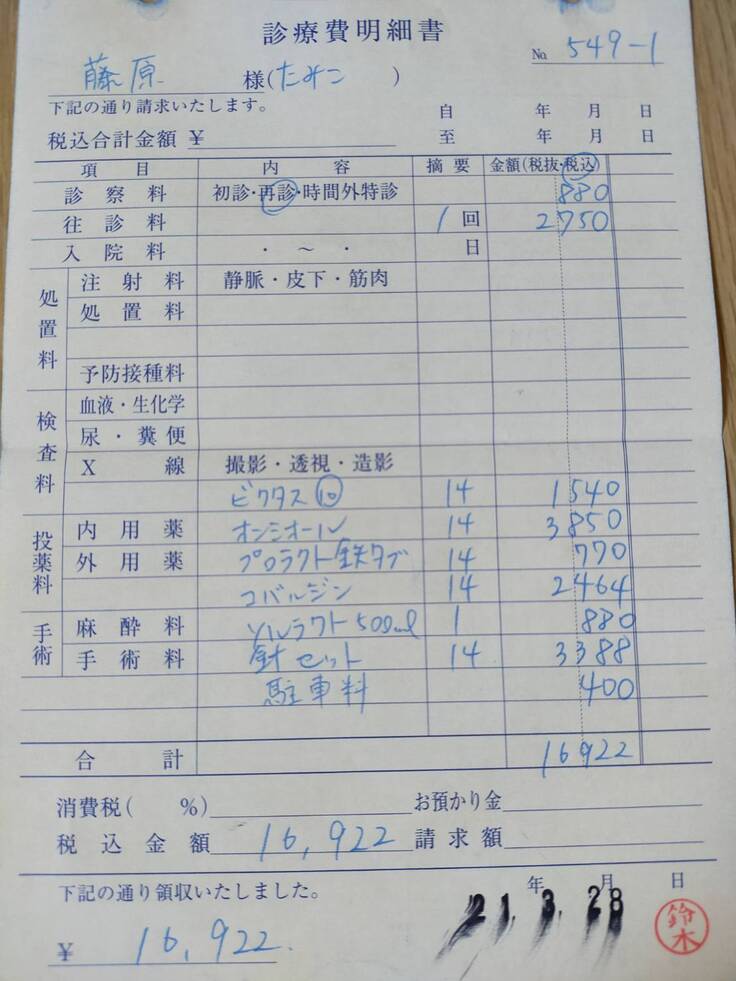 診療費明細書
№ 549-1
藤原 様(たみこ)
下記の通り請求いたします。
自 年 月 日
税込合計金額 ¥ 至 年 月 日
項目 内容 摘要 金額(税抜・税込)
診察料 初診・再診・時間外特診 880
往診料 1回 2750
入院料 ・ ～ ・ 日
処置料
注射料 静脈・皮下・筋肉
処置料
予防接種料
検査料
血液・生化学
尿・糞便
X線 撮影・透視・造影
ビクタス⑩ 14 1540
投薬料
内用薬 オンシオール 14 3850
外用薬 プロラクト鉄タブ 14 770
コバルジン 14 2464
手術
麻酔料 ソルラクト500ml 1 880
手術料 針セット 14 3388
駐車料 400
合計 16922
消費税( %) お預かり金
税込金額 16,922 請求額
下記の通り領収いたしました。
年 月 日
21.3.28
鈴木
¥ 16,922.